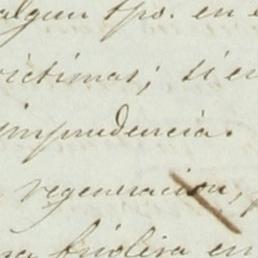 algun tpo. en
victimas; si en
imprudencia.
regeneracion,
friolera en